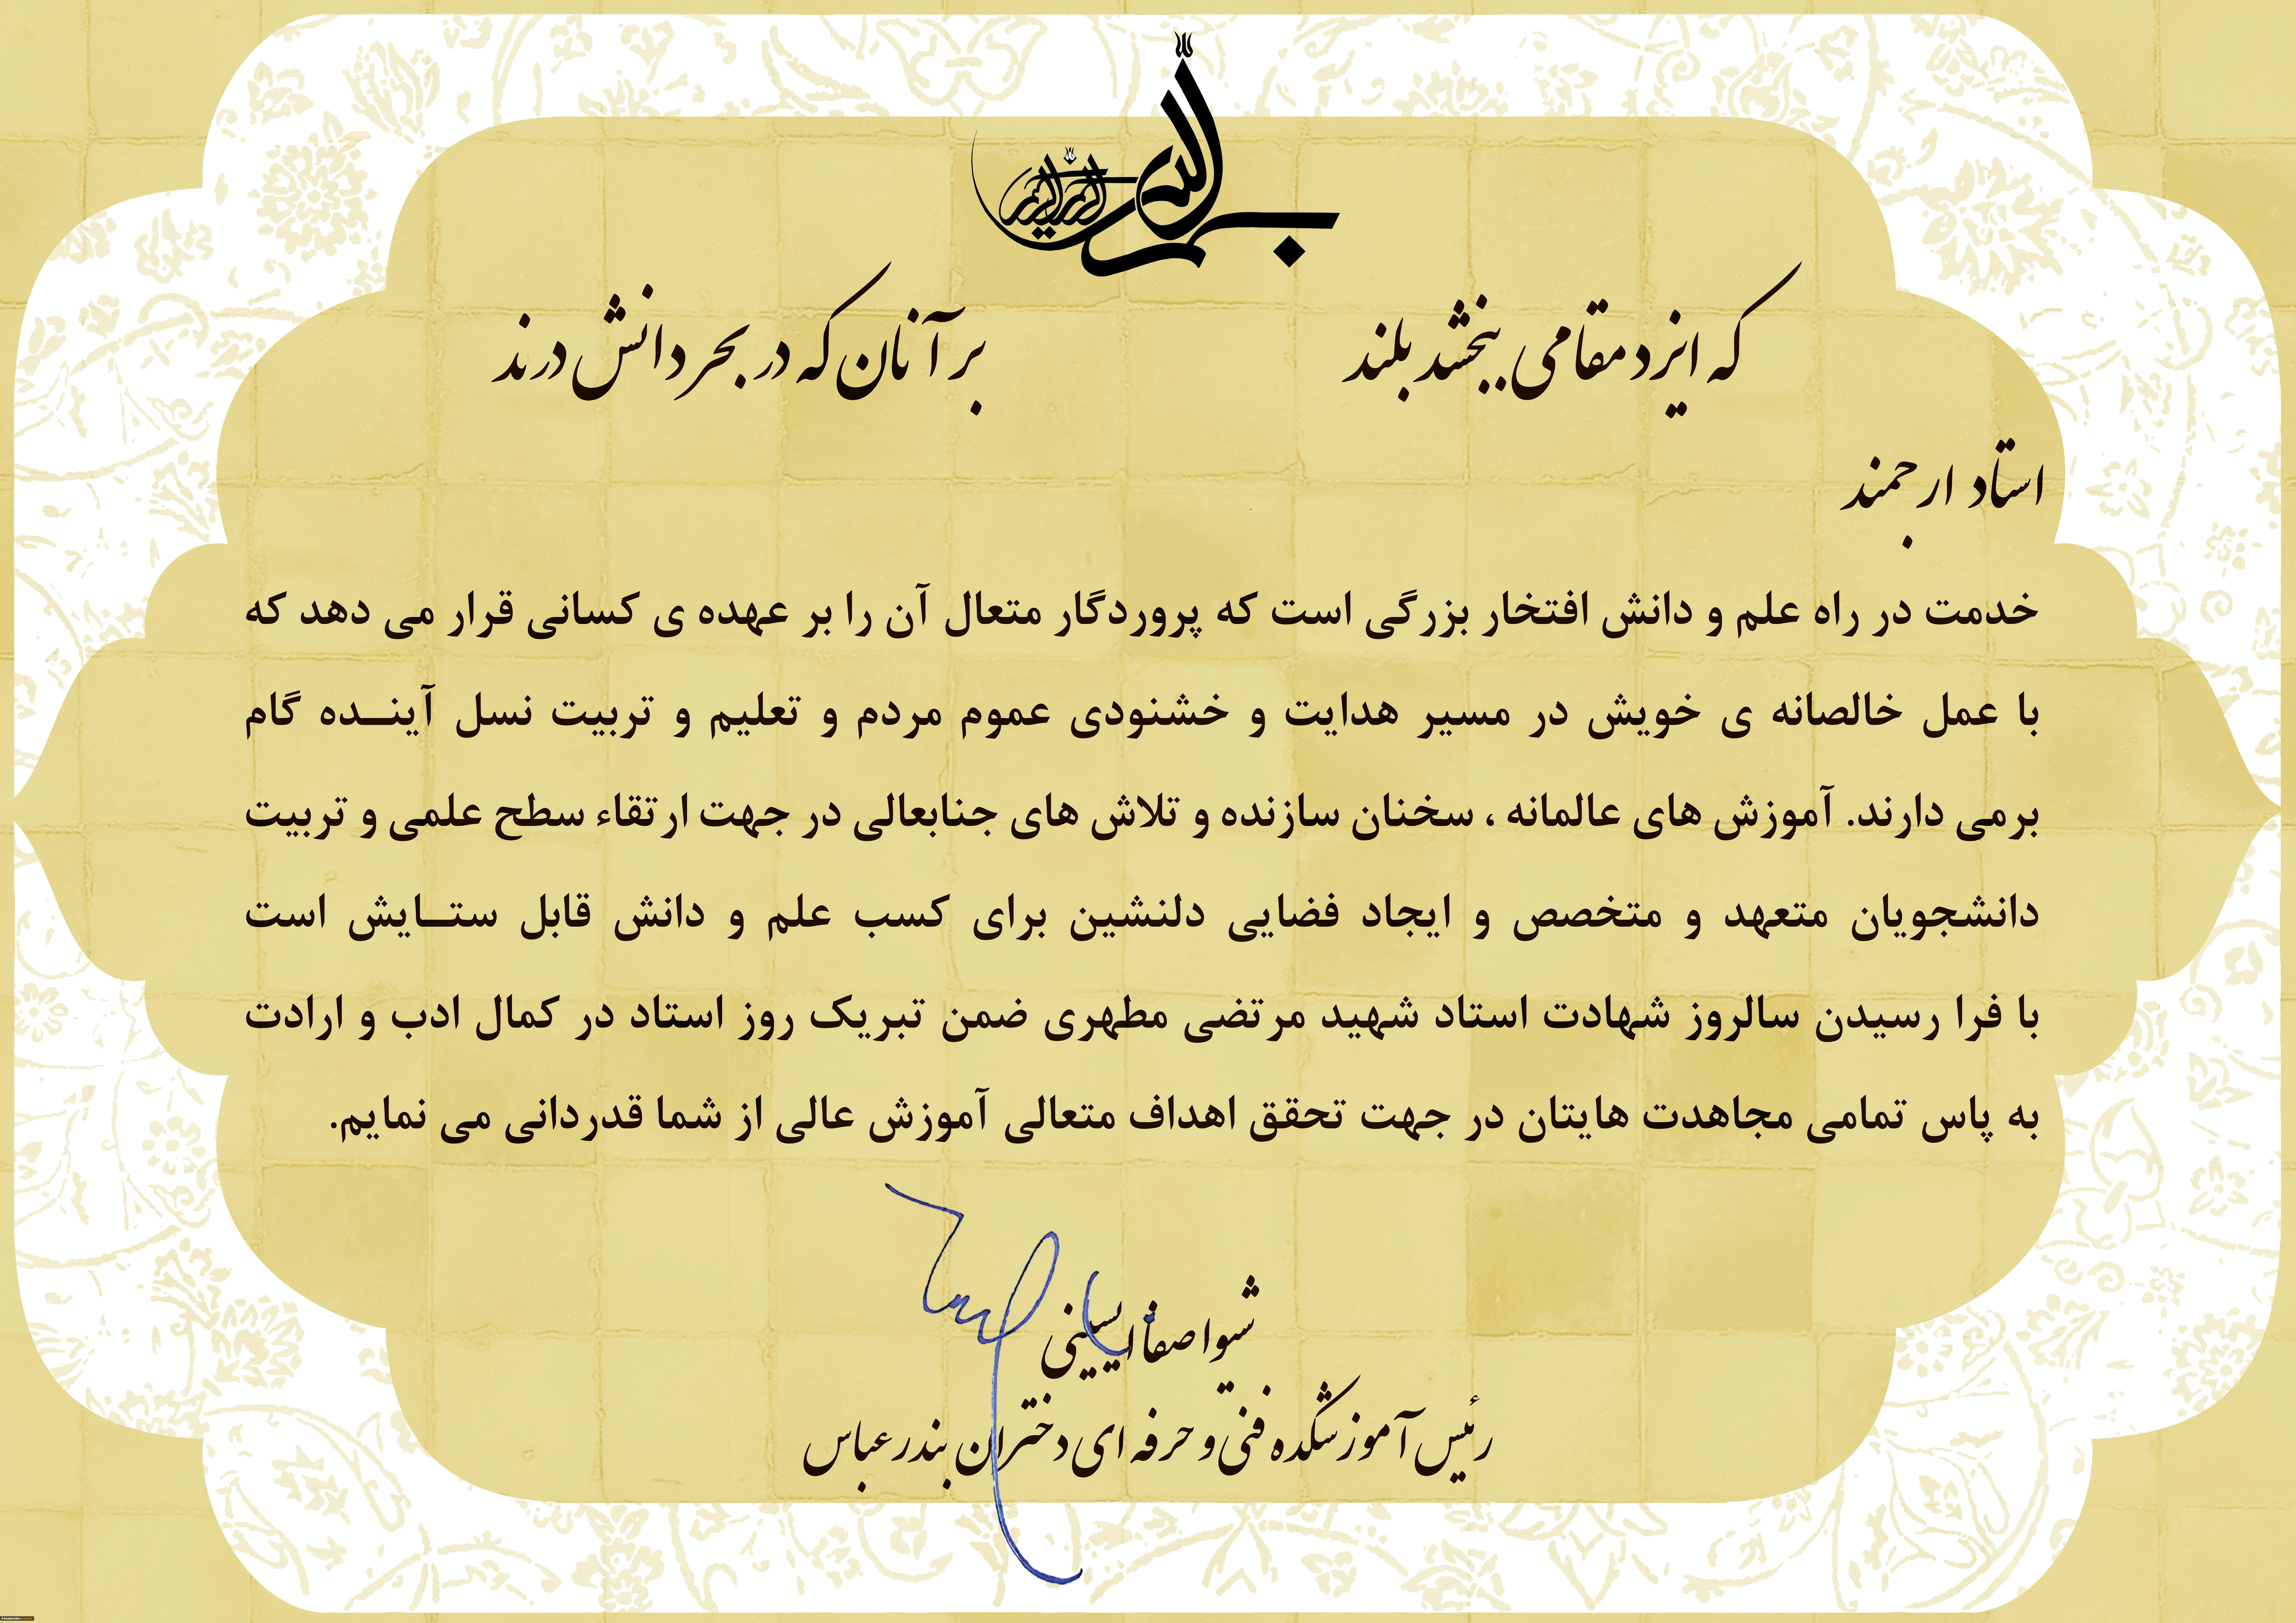 بسم الله الرحمن الرحیم
که ایزد مقامی ببخشد بلند بر آنان که در بحر دانش درند
استاد ارجمند
خدمت در راه علم و دانش افتخار بزرگی است که پروردگار متعال آن را بر عهده ی کسانی قرار می دهد که
با عمل خالصانه ی خویش در مسیر هدایت و خشنودی عموم مردم و تعلیم و تربیت نسل آینــده گام
برمی دارند. آموزش های عالمانه ، سخنان سازنده و تلاش های جنابعالی در جهت ارتقاء سطح علمی و تربیت
دانشجویان متعهد و متخصص و ایجاد فضایی دلنشین برای کسب علم و دانش قابل ستــایش است
با فرا رسیدن سالروز شهادت استاد شهید مرتضی مطهری ضمن تبریک روز استاد در کمال ادب و ارادت
به پاس تمامی مجاهدت هایتان در جهت تحقق اهداف متعالی آموزش عالی از شما قدردانی می نمایم.
شیوا صفا ایسینی
رئیس آموزشکده فنی و حرفه ای دختران بندرعباس